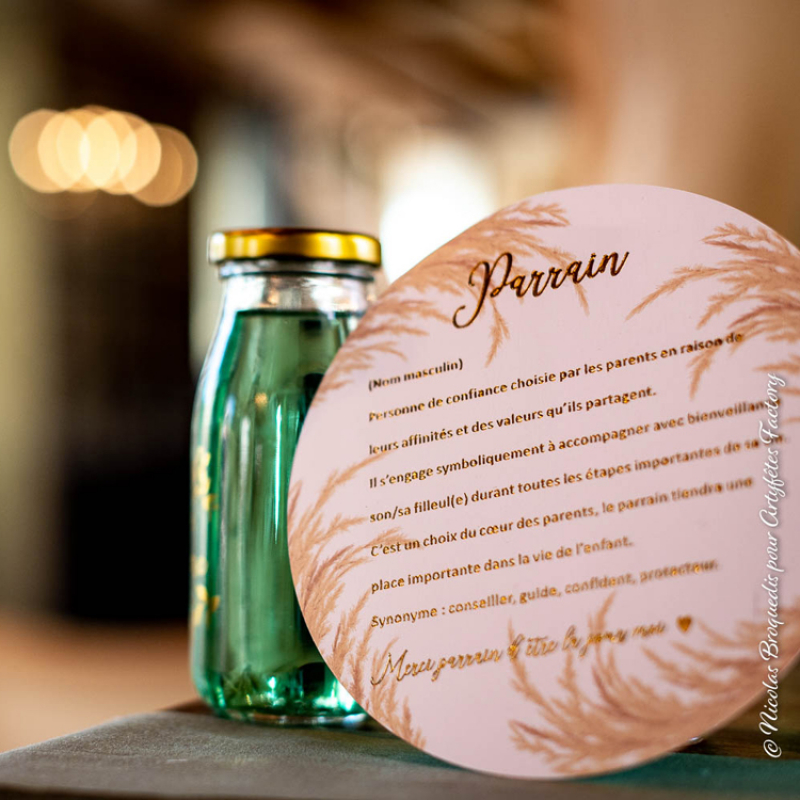 Parrain
(Nom masculin)
Personne de confiance choisie par les parents en raison de
leurs affinités et des valeurs qu'ils partagent.
Il s'engage symboliquement à accompagner avec bienveillance
son/sa filleul(e) durant toutes les étapes importantes de sa
C'est un choix du cœur des parents, le parrain tiendra une
place importante dans la vie de l'enfant.
Synonyme : conseiller, guide, confident, protecteur.
Merci parrain d'être là pour moi ♥
© Nicolas Broquedis pour Artyfêtes Factory